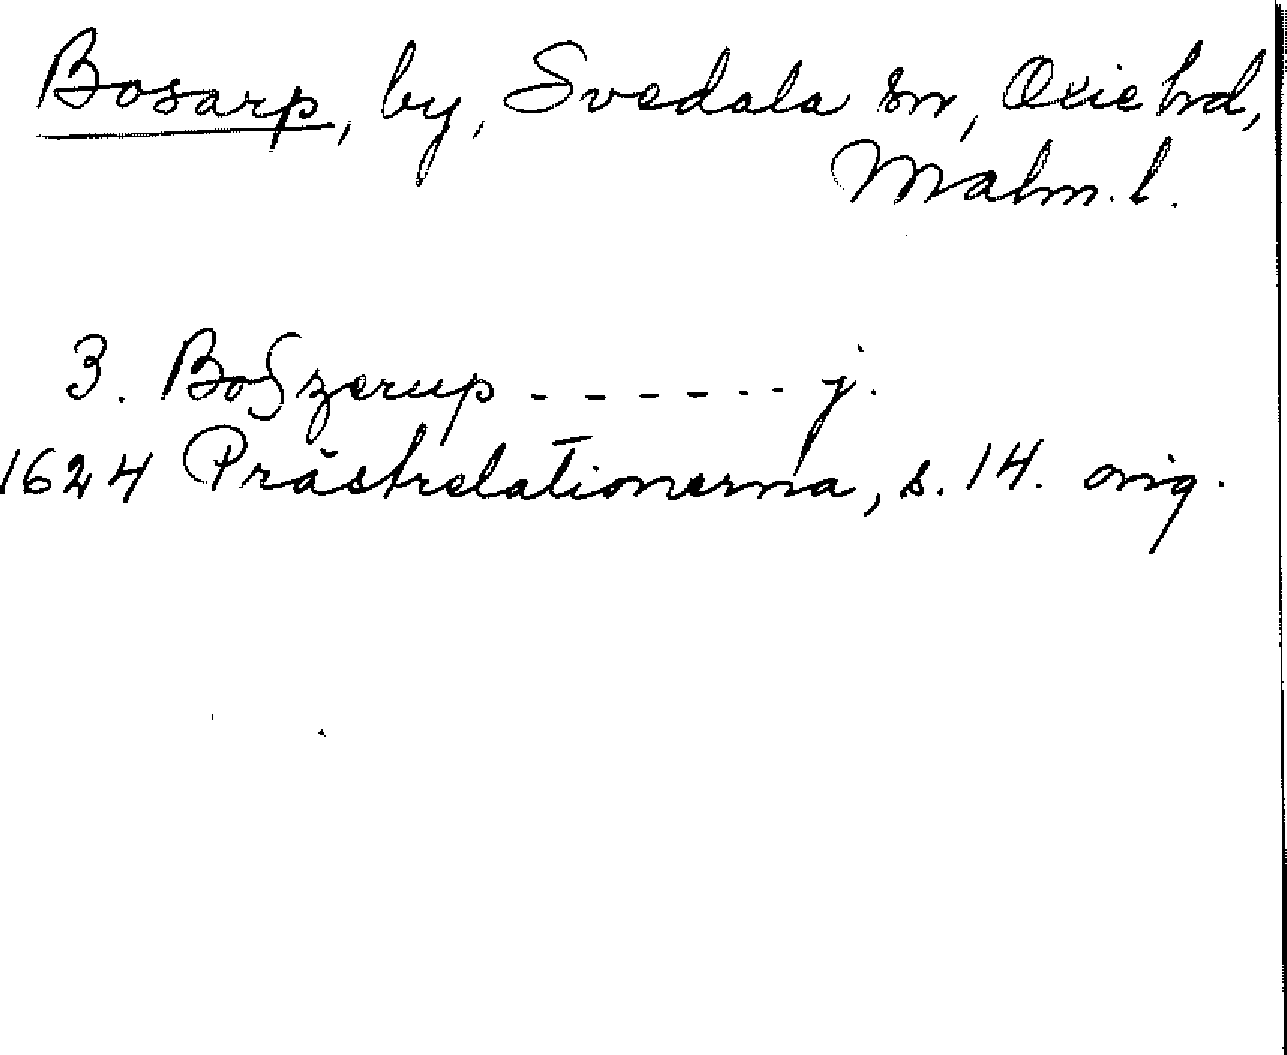 Bosarp, by, Svedala sn, Oxie hd,
Malm. l.
3. Boſzerup - - - - - - j.
1624 Prästrelationerna, s. 14. orig.